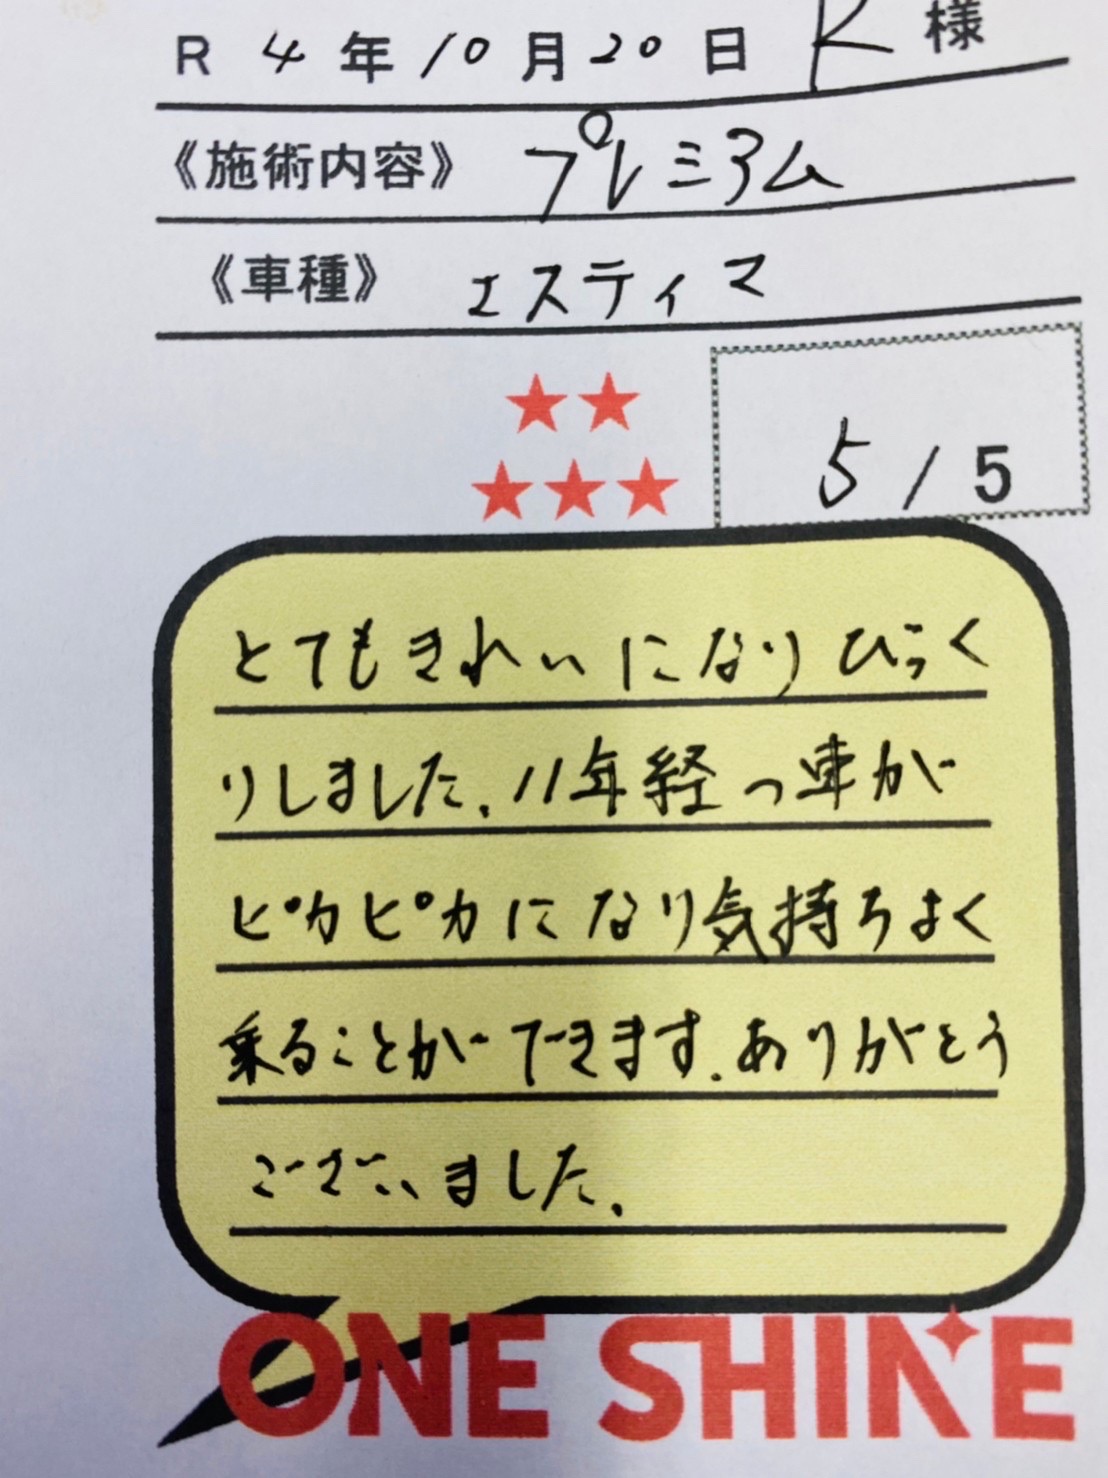 R 4年10月20日 K様
《施術内容》 プレミアム
《車種》 エスティマ
5/5
とてもきれいになりびっく
りしました、11年経つ車が
ピカピカになり気持ちよく
乗ることができます.ありがとう
ございました.
ONE SHINE